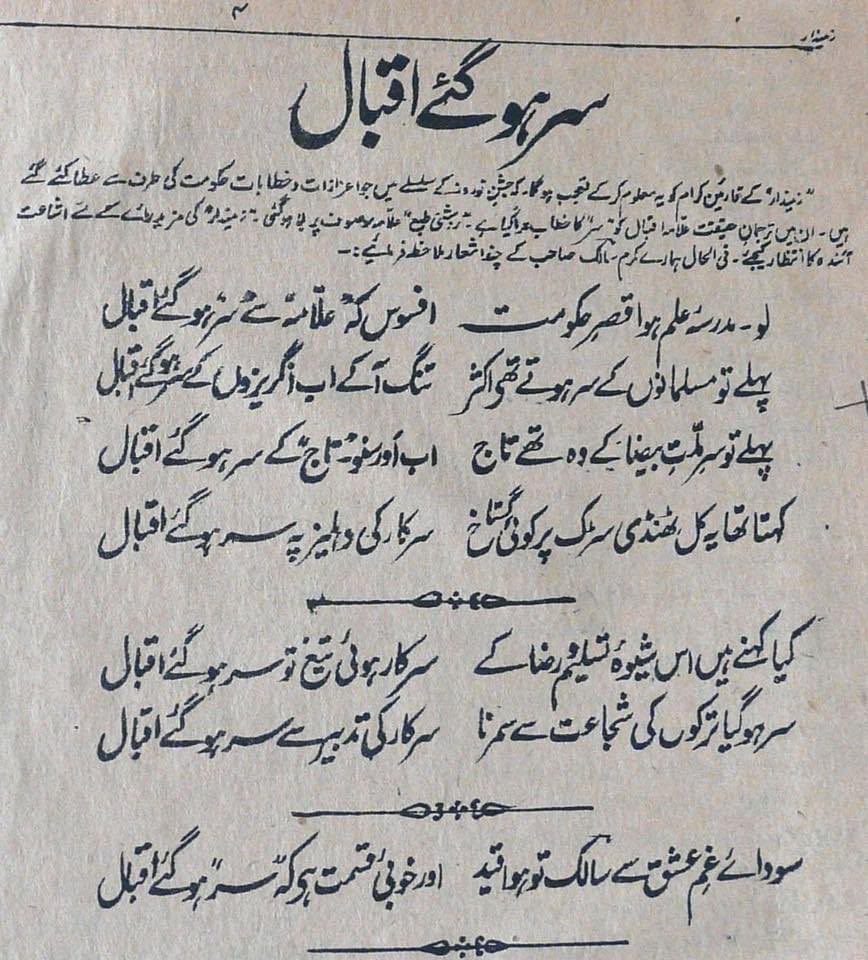 زمیندار
۳
سر ہو گئے اقبال
"زمیندار" کے قارئین کرام کو یہ معلوم کر کے تعجب ہوگا۔ کہ جشن نوروز کے سلسلے میں جو اعزازات و خطابات حکومت کی طرف سے عطا کئے گئے
ہیں۔ ان میں ترجمان حقیقت علامہ اقبال کو "سر" کا خطاب عطا کیا ہے۔ علامہ موصوف پر ہو گئی۔ "زمیندار" کی مزید رائے کے لئے اشاعت
آئندہ کا انتظار کیجئے۔ فی الحال ہمارے مکرم سالک صاحب کے چند اشعار ملاحظہ فرمائیے:۔
لو۔ مدرسۂ علم ہوا قصرِ حکومت افسوس کہ "علامہ" سے "سر" ہو گئے اقبال
پہلے تو مسلمانوں کے سر ہوتے تھے اکثر تنگ آ کے اب انگریزوں کے سر ہو گئے اقبال
پہلے تو سرِ ملّتِ بیضا کے وہ تھے تاج اب اور سنو۔ "تاج" کے سر ہو گئے اقبال
کہتا تھا یہ کل ٹھنڈی سڑک پر کوئی گستاخ سرکار کی دہلیز پہ سر ہو گئے اقبال
کیا کہنے ہیں اس شیوۂ تسلیم و رضا کے سرکار ہوئی تیغ تو سر ہو گئے اقبال
سر ہو گیا ترکوں کی شجاعت سے سمرنا سرکار کی تدبیر سے سر ہو گئے اقبال
سودائے غمِ عشق سے سالک تو ہوا قید اور خوبیٔ قسمت ہی کہ "سر" ہو گئے اقبال